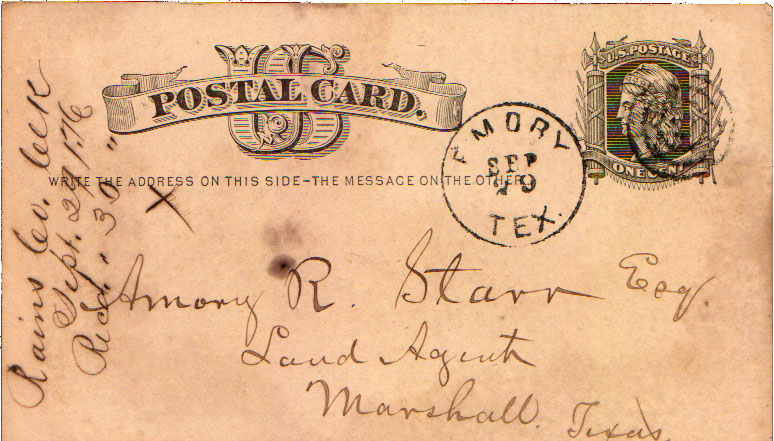 U.S. POSTAGE
ONE CENT
US
POSTAL CARD.
WRITE THE ADDRESS ON THIS SIDE–THE MESSAGE ON THE OTHER
EMORY
SEP
29
TEX.
Amory R. Starr Esq.
Land Agent
Marshall. Texas.
Rains Co. Clk
Sept. 29/76
Recd. " 30 "